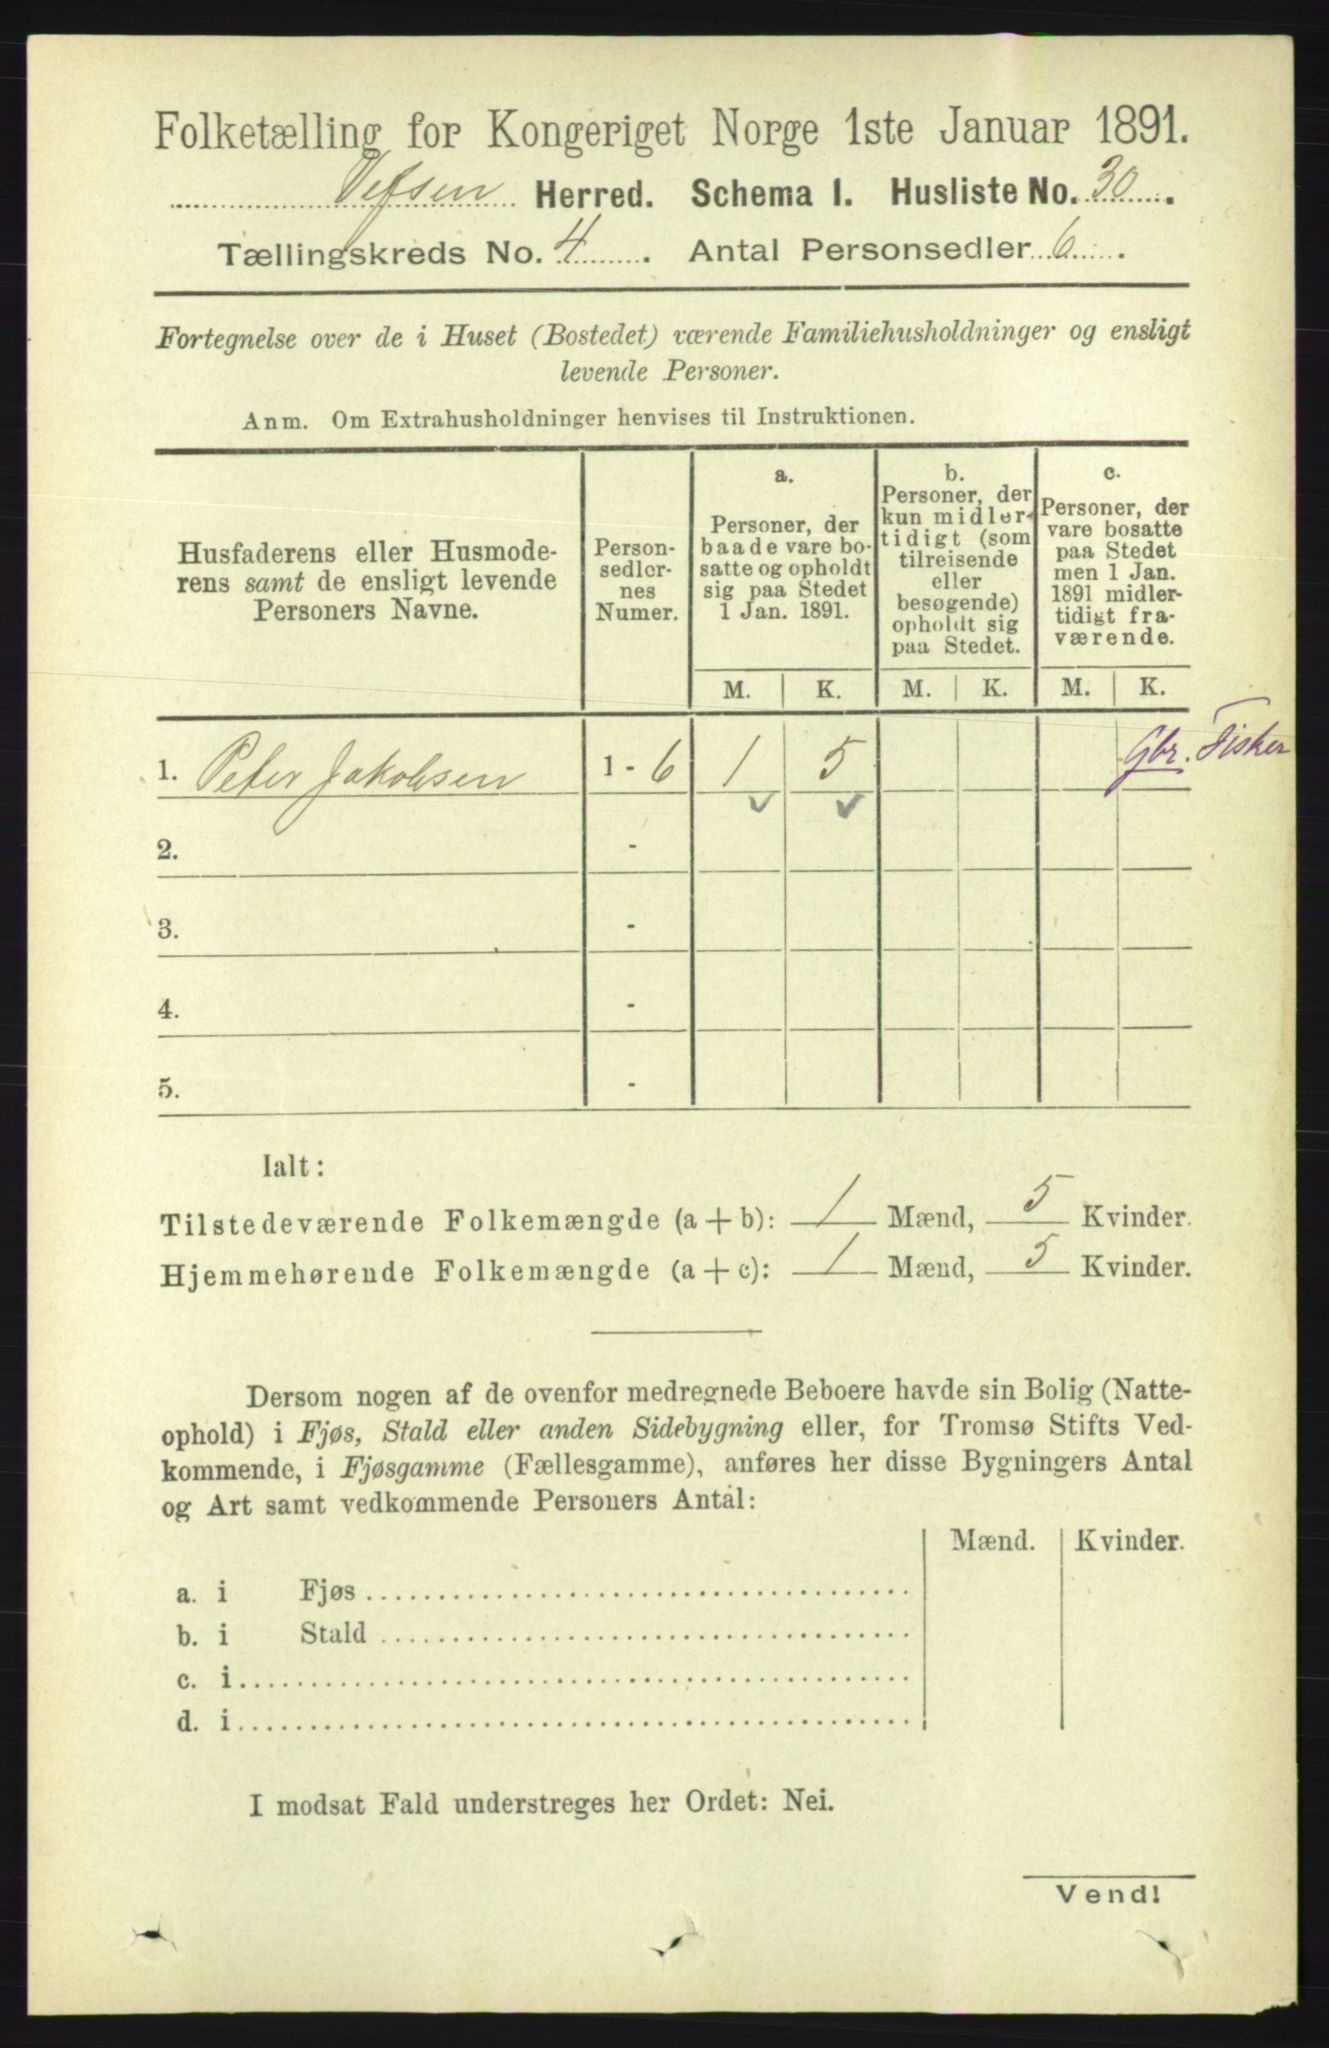 Folketælling for Kongeriget Norge 1ste Januar 1891.
Vefsen Herred. Schema 1. Husliste No. 30.
Tællingskreds No. 4. Antal Personsedler 6.
Fortegnelse over de i Huset (Bostedet) værende Familiehusholdninger og ensligt
levende Personer.
Anm. Om Extrahusholdninger henvises til Instruktionen.
Husfaderens eller Husmode-
rens samt de ensligt levende
Personers Navne.
Person-
sedler-
nes
Numer.
a.
Personer, der
baade vare bo-
satte og opholdt
sig paa Stedet
1 Jan. 1891.
b.
Personer, der
kun midler-
tidigt (som
tilreisende
eller
besøgende)
opholdt sig
paa Stedet.
c.
Personer, der
vare bosatte
paa Stedet
men 1 Jan.
1891 midler-
tidigt fra-
værende.
M. K. M. K. M. K.
1. Peter Jakobsen 1 - 6 1 5 Gbr. Fisker
2. -
3. -
4. -
5. -
Ialt:
Tilstedeværende Folkemængde (a+b): 1 Mænd, 5 Kvinder.
Hjemmehørende Folkemængde (a+c): 1 Mænd, 5 Kvinder.
Dersom nogen af de ovenfor medregnede Beboere havde sin Bolig (Natte-
ophold) i Fjøs, Stald eller anden Sidebygning eller, for Tromsø Stifts Ved-
kommende, i Fjøsgamme (Fællesgamme), anføres her disse Bygningers Antal
og Art samt vedkommende Personers Antal:
Mænd. Kvinder.
a. i Fjøs
b. i Stald
c. i
d. i
I modsat Fald understreges her Ordet: Nei.
Vend!